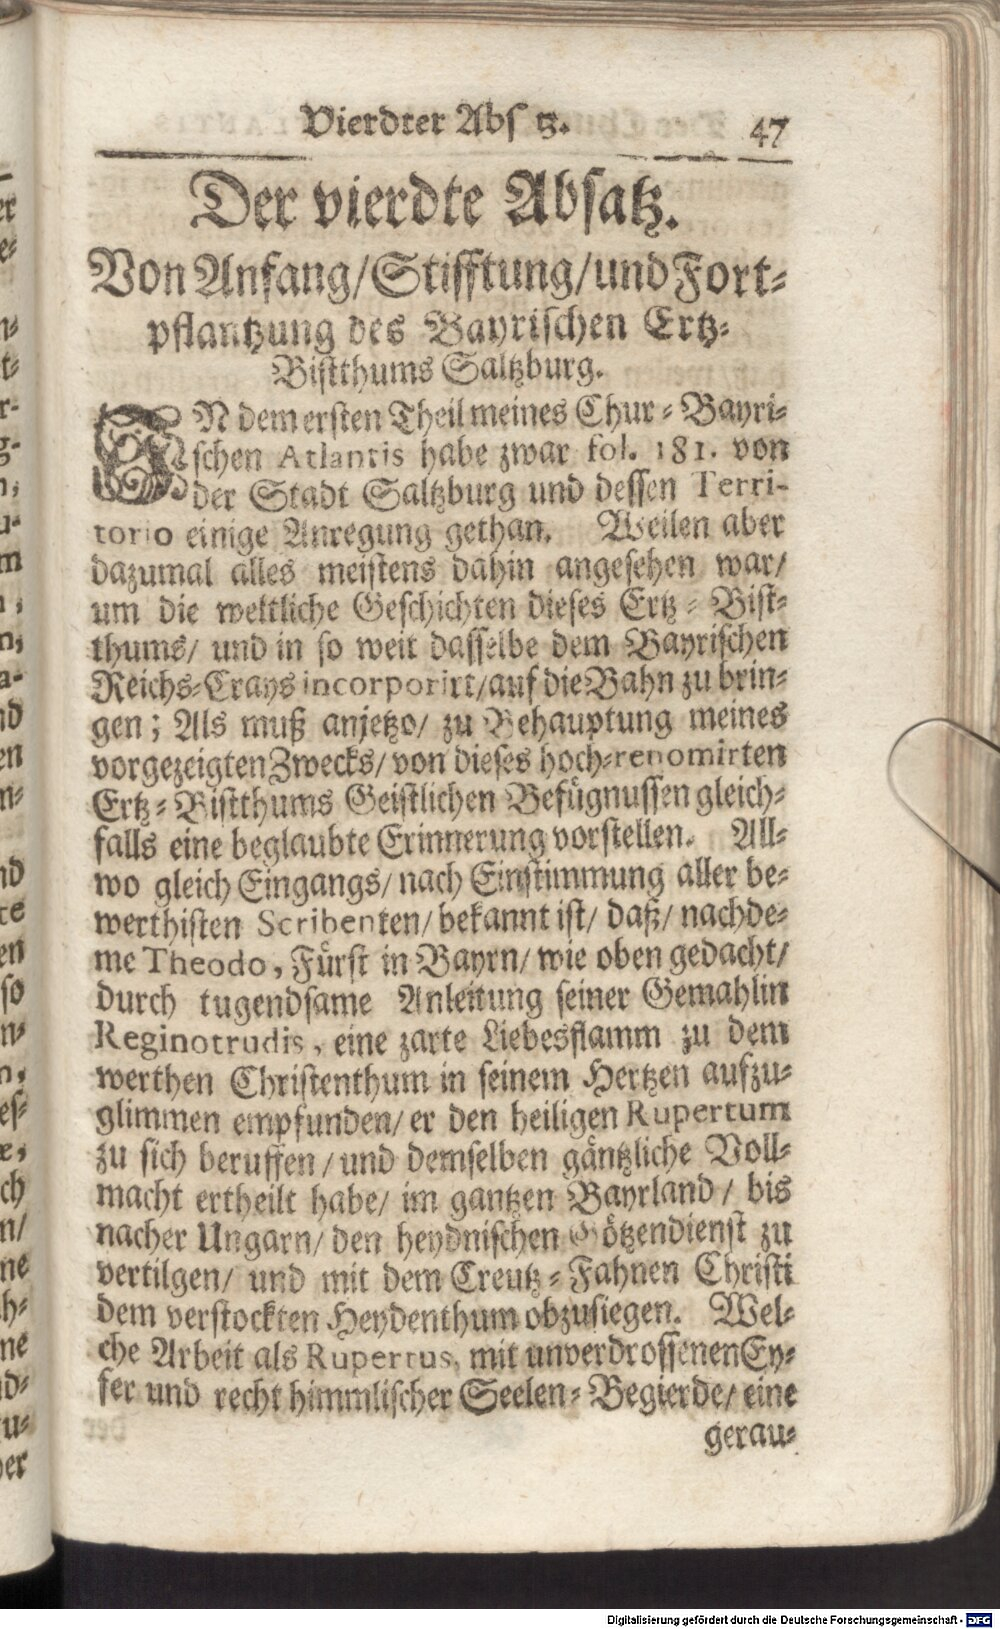 Vierdter Absatz. 47
Der vierdte Absatz.
Von Anfang/Stifftung/und Fort-
pflantzung des Bayrischen Ertz-
Bistthums Saltzburg.
IN dem ersten Theil meines Chur-Bayri-
schen Atlantis habe zwar fol. 181. von
der Stadt Saltzburg und dessen Terri-
torio einige Anregung gethan. Weilen aber
dazumal alles meistens dahin angesehen war/
um die weltliche Geschichten dieses Ertz-Bist-
thums/ und in so weit dasselbe dem Bayrischen
Reichs-Crays incorporirt/auf die Bahn zu brin-
gen; Als muß anjetzo/ zu Behauptung meines
vorgezeigten Zwecks/ von dieses hoch-renomirten
Ertz-Bistthums Geistlichen Befügnussen gleich-
falls eine beglaubte Erinnerung vorstellen. All-
wo gleich Eingangs/ nach Einstimmung aller be-
werthisten Scribenten/ bekannt ist/ daß/ nachde-
me Theodo, Fürst in Bayrn/ wie oben gedacht/
durch tugendsame Anleitung seiner Gemahlin
Reginotrudis, eine zarte Liebesflamm zu dem
werthen Christenthum in seinem Hertzen aufzu-
glimmen empfunden/ er den heiligen Rupertum
zu sich beruffen/ und demselben gäntzliche Voll-
macht ertheilt habe/ im gantzen Bayrland/ bis
nacher Ungarn/ den heydnischen Götzendienst zu
vertilgen/ und mit dem Creutz-Fahnen Christi
dem verstockten Heydenthum obzusiegen. Wel-
che Arbeit als Rupertus, mit unverdrossenen Ey-
fer und recht himmlischer Seelen-Begierde/ eine
gerau-
Digitalisierung gefördert durch die Deutsche Forschungsgemeinschaft - DFG